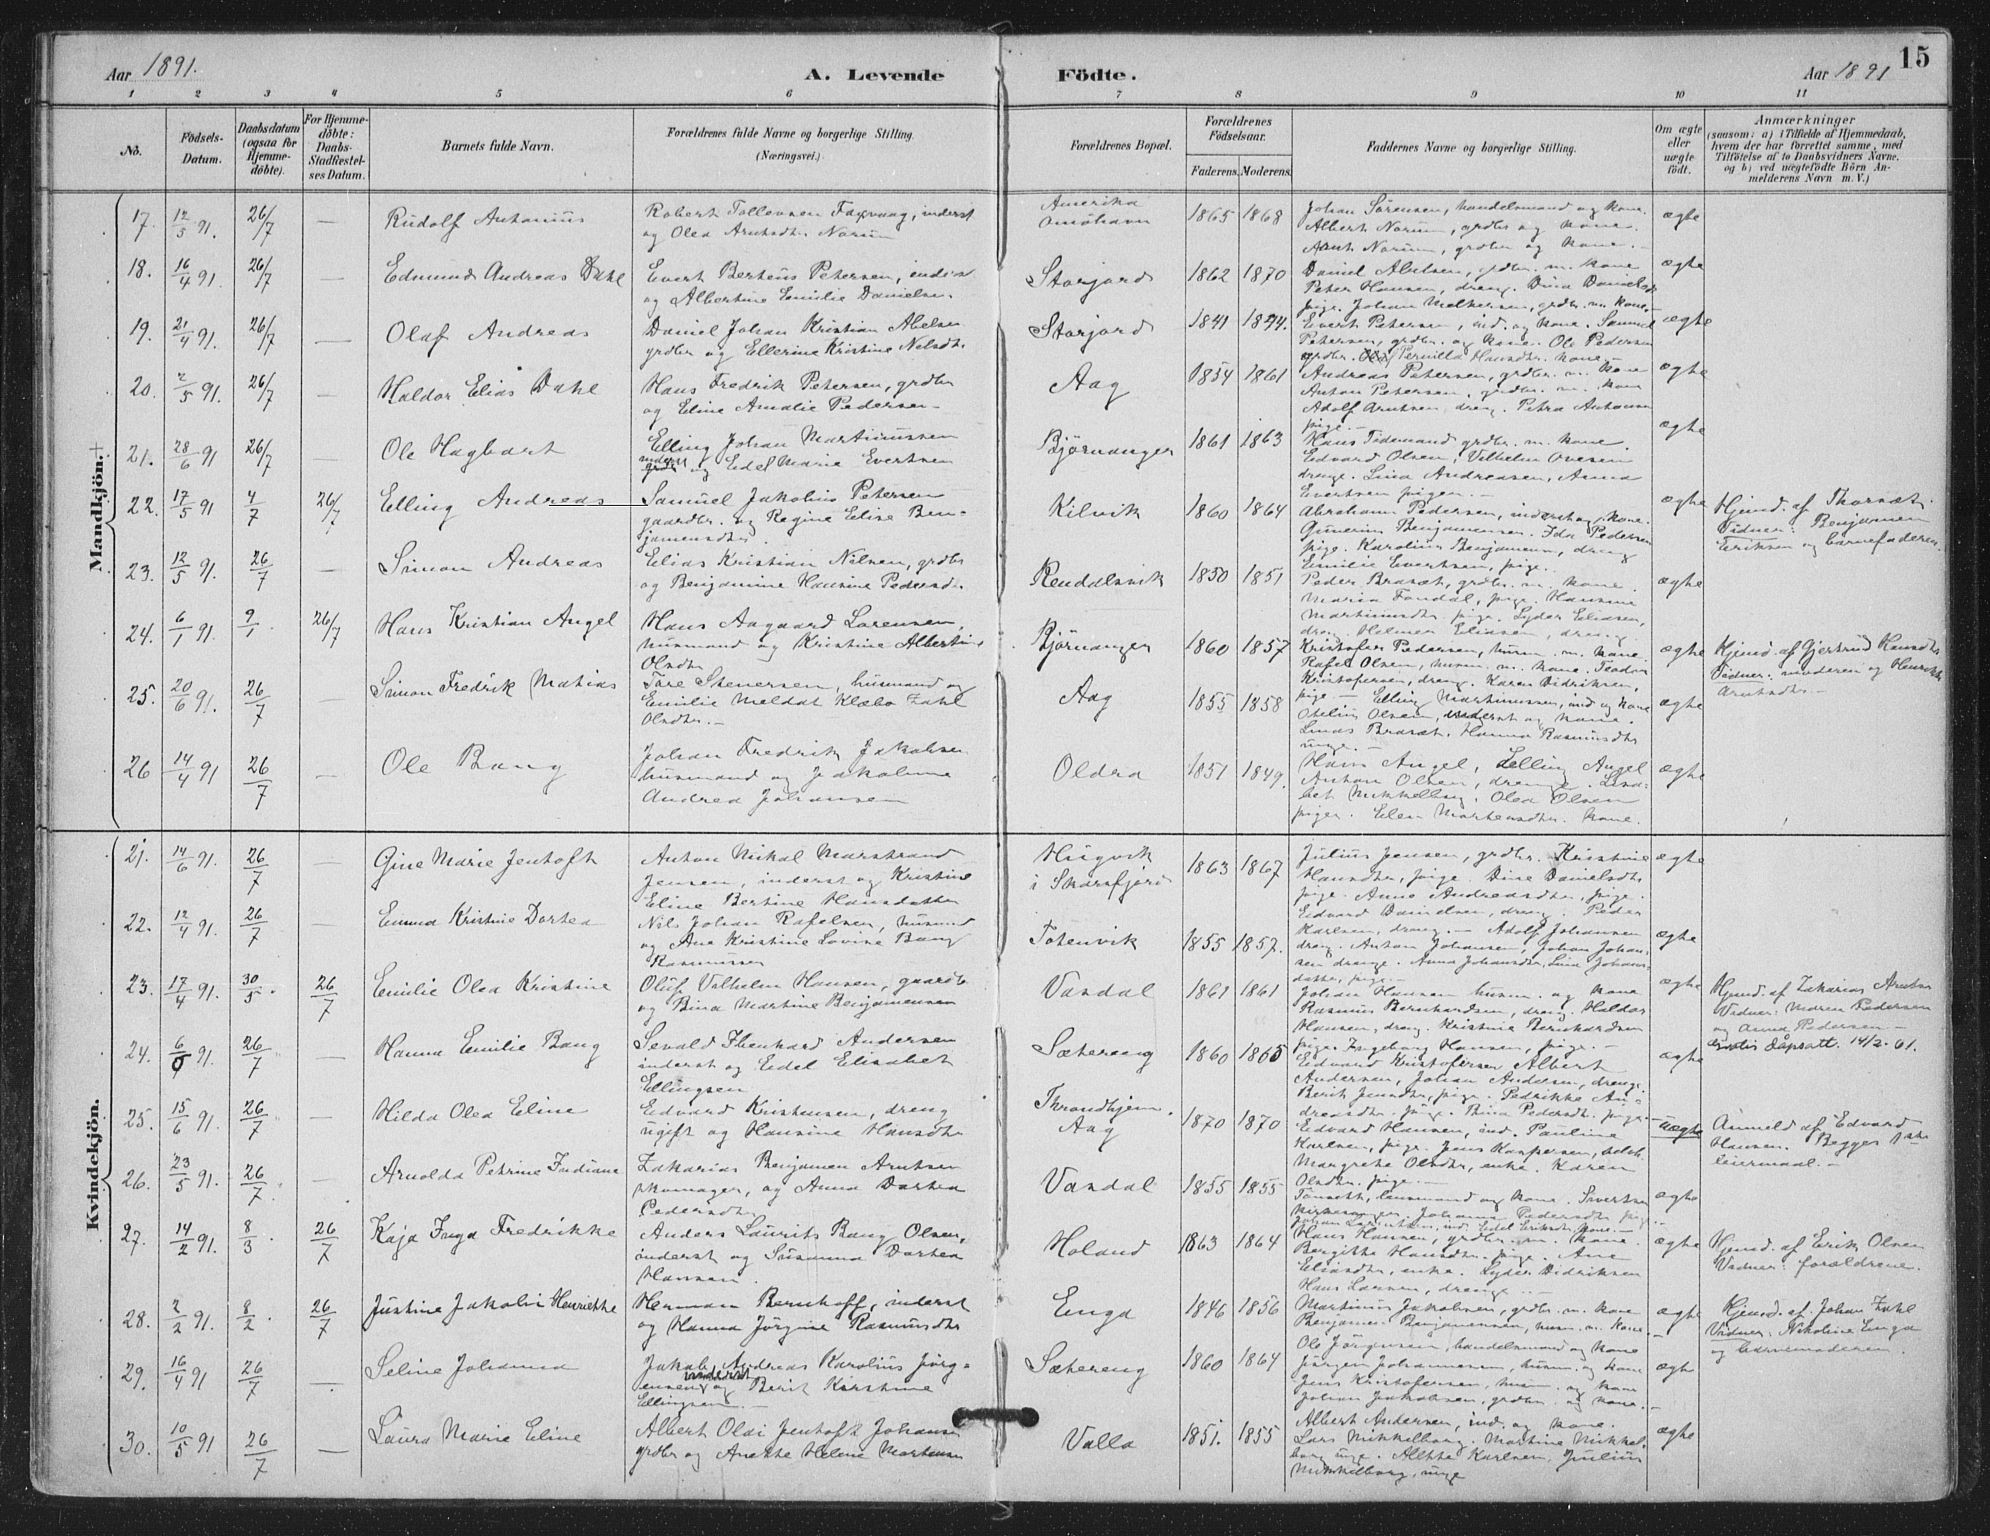 Aar 1891.
A. Levende Födte.
Aar 1891
15
1 2 3 4 5 6 7 8 9 10 11
No.
Födsels-Datum.
Daabsdatum (ogsaa for Hjemme-döbte).
For Hjemme-döbte: Daabs-Stadfæstel-ses Datum.
Barnets fulde Navn.
Forældrenes fulde Navne og borgerlige Stilling.
(Næringsvei.)
Forældrenes Bopæl.
Forældrenes Födselsaar.
Faderens. Moderens.
Faddernes Navne og borgerlige Stilling.
Om ægte eller uægte födt.
Anmærkninger
(saasom: a) i Tilfælde af Hjemmedaab,
hvem der har forrettet samme, med
Tilföielse af to Daabsvidners Navne,
og b) ved uægtefödte Börn An-
melderens Navn m. V.)
Mandkjön.
17. 12/5 91. 26/7 — Rudolf Antonius
Robert Tollevsen Farvaag, inderst
og Olea Arntsdtr. Norum
Amerika
1865 1868
Johan Sørensen, handelsmand og kone.
Albert Norum, grdbr og kone.
Arnt Norum, grdbr og kone.
ægte
18. 16/4 91. 26/7 — Edmund Andreas Dahl
Evert Berteus Petersen, inderst
og Albertine Emilie Danielsen.
Storjord
1862 1870
Daniel Abelsen, grdbr. m. kone
Peter Hansen, dreng. Dina Danielsdr
pige. Johan Melkersen, grdbr. m. kone.
ægte
19. 21/4 91. 26/7 — Olaf Andreas
Daniel Johan Kristian Abelsen
grdbr og Ellerine Kristine Nilsdtr
Storjord
1841 1844.
Evert Petersen, ind. og kone. Samuel
Petersen, grdbr. og kone. Ole Pedersen
grdbr. Pernilla Hansdtr. kone.
ægte
20. 2/5 91. 26/7 — Haldor Elias Dahl
Hans Fredrik Petersen, grdbr
og Eline Amalie Pedersen
Aag
1854 1861
Andreas Petersen, grdbr. m. kone
Anton Petersen, grdbr. m. kone
Adolf Arntsen, dreng. Petra Antonsen
pige.
ægte
21. 28/6 91 26/7 — Ole Hagbart
Elling Johan Martinussen
inderst og Edel Marie Evertsen
Bjørnanger
1861 1863
Hans Tidemand grdbr. m. kone
Edvard Olsen, Vilhelm Ovesen
drenge. Lina Andreasen, Anna
Evertsen piger.
ægte
22. 17/5 91 4/7 26/7 Elling Andreas
Samuel Jakobius Petersen
gaardbr. og Regine Elise Ben-
jamensdtr.
Kilvik
1860 1864
Abraham Pedersen, inderst og kone.
Gunerius Benjamensen. Ida Pedersen
pige. Karolius Benjamensen, dreng
Emilie Evertsen, pige.
ægte
Hjemd. af Thorsæt.
Vidner: Benjamen
Eriksen og barnefaderen.
23. 12/5 91. 26/7 — Simon Andreas
Elias Kristian Nilsen, grdbr
og Benjamine Hansine Pedersdtr.
Rendalsvik
1850 1851
Peder Brasæt, grdbr. m. kone
Maria Fondal, pige. Hansine
Martinusdtr pige. Lyder Eliasen,
dreng. Helmer Eliasen, dreng.
ægte
24. 6/1 91. 9/1. 26/7 Hans Kristian Angel
Hans Aagaard Lorensen,
husmand og Kristine Albertine
Olsdtr
Bjørnanger
1860 1857
Kristofer Pedersen, husm. m. kone
Rafel Olsen, husm. m. kone. Teodor
Kristofersen, dreng. Karen Didriksen,
pige
ægte
Hjemd. af Gjertrud Hansdtr
Vidner: moderen og Henrikke
Arntsdtr.
25. 20/6 91. 26/7 — Simon Fredrik Matias
Tore Stenersen, husmand og
Emilie Meldal Klæbo Zahl
Olsdtr.
Aag
1855 1858
Elling Martinussen, ind og kone
Otelius Olsen, inderst og kone.
Linds Brasæt. Hanna Rasmusdtr
unge.
ægte
26 14/4 91 26/7 — Ole Bang
Johan Fredrik Jakobsen
husmand og Jakobine
Andrea Johansen
Oldra
1851 1849.
Hans Angel, Elling Angel
Anton Olsen, drenge.
Mikkelborg. Olea Olsen
piger. Elen Mortensdtr. kone.
ægte
Kvindekjön.
21. 14/6 91. 26/7 — Gine Marie Jentoft
Anton Nikal Marstrand
Jensen, inderst og Kristine
Eline Bertine Hansdatter
Husvik
i Skarsfjord
1863 1867
Julius Jensen, grdbr. Kristine
Hansdtr, pige. Dine Danielsdtr
pige. Anne Andreasdtr, pige.
Edvard Danielsen, dreng. Peder
Karlsen, dreng.
ægte
22. 12/4 91. 26/7 — Emma Kristine Dortea
Nils Johan Rafelsen, husmd
og Ane Kristine Lovise Bang
Rasmussen
Totenvik
1855 1857.
Adolf Johansen
dreng. Anton Johansen, Johan Johan-
sen drenge. Anna Johansdtr, Lina Johans-
datter, pige.
ægte
23. 17/4 91. 30/5. 26/7 Emilie Olea Kristine
Oluf Vilhelm Hansen, gaardbr
og Bina Martine Benjamensen
Vasdal
1861 1861
Johan Hansen husm. og kone
Rasmus Bernhardsen, dreng. Haldor
Hansen, dreng. Kristine Bernhardsen
pige. Ingeborg Hansen, pige.
ægte
Hjemd. af Zakarias Arntsen
Vidner: Maren Pedersen
og Anna Pedersen
Gratis dåpsatt. 14/2-61.
24. 6/6 91. 26/7 — Hanna Emilie Bang
Sevald Ebenhard Andersen
inderst og Edel Elisabet
Ellingsen
Sætereng
1860 1865
Edvard Kristofersen Albert
Andersen, Johan Andersen, drenge.
Berit Jensdtr, pige. Pedrikke An-
dreasdtr. pige. Bina Pedersdtr. pige.
ægte
25. 15/6 91. 26/7 — Hilda Olea Eline
Edvard Kristensen, dreng
ugift og Hansine Hansdtr
Throndhjem.
Aag
1870 1870
Edvard Hansen, ind. Pauline
Karlsen, pige. Jens Kaspersen,
Margrete Olsdtr, enke. Karen
Olsdtr. pige.
uægte
Anmeld af Edvard
Hansen. Begges 1ste
leiermaal.
26. 23/5 91. 26/7. — Arnolda Petrine Indiana
Zakarias Benjamen Arntsen
skomager, og Anna Dortea
Pedersdtr
Vasdal
1855 1855
Tonseth, lensmand og kone. Sivertsen
kirkesanger. Johanna Pedersdtr pige
Johan Larentsen, ind. Edel Eriksdtr, kone.
ægte
27. 14/2 91. 8/3. 26/7 Kaja Inga Fredrikke
Anders Laurits Bang Olsen,
inderst og Susanna Dortea
Hansen.
Holand
1863 1864
Hans Hansen, grdbr. m. kone.
Bergitte Hansdtr. pige. Ane
Eliasdtr, enke. Lyder Didriksen
Hans Larsen, drenge.
ægte
Hjemd. af Erik Olsen
Vidner: forældrene.
28. 2/2 91. 8/2. 26/7 Justine Jakobine Henrikke
Herman Bernhoff, inderst
og Hanna Jørgine Rasmusdtr
Enga
1846 1856
Martinus Jakobsen, grdbr. m. kone
Benjamen Benjamensen, husm. m. kone.
ægte
Hjemd. af Johan Zahl
Vidner: Nikoline Enga
og barnemoderen.
29. 16/4 91 26/7 — Seline Johanna
Jakob Andreas Karolius Jørg-
ensen inderst og Berit Kirstine
Ellingsen.
Sætereng
1860 1864
Ole Jørgensen, handelsmand og kone
Jørgen Johannesen, husm. og kone
Jens Kristofersen, husm. og kone
Johan Jakobsen, grdbr. og kone.
ægte
30. 10/5 91 26/7 — Laura Marie Eline
Albert Olai Jentoft Johansen
grdbr og Anette Helene Mortensen
Valla
1851. 1855
Albert Andersen, ind. og kone.
Lars Mikkelborg. Martine Mikkel-
borg unge. Aletta Karlsen, Julius
Mikkelborg, unge
ægte